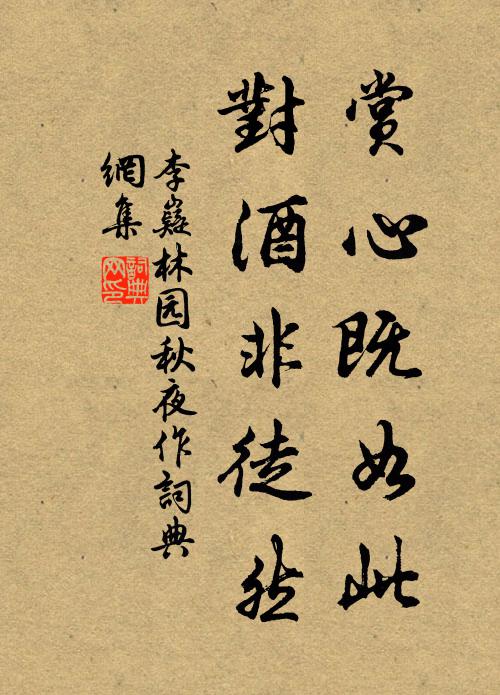 賞心既如此
對酒非徒然
李嶷林园秋夜作詞典
網集
詞典網印